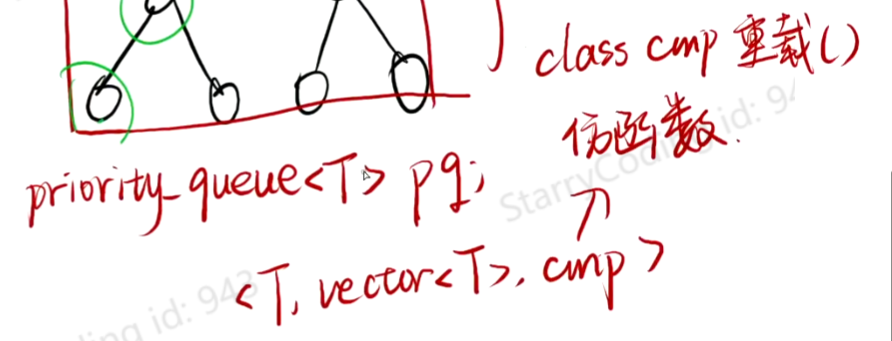 class cmp 重载()
仿函数.
priority_queue<T> pq;
<T, vector<T>, cmp>
StarryCoding id: 94
ding id: 943